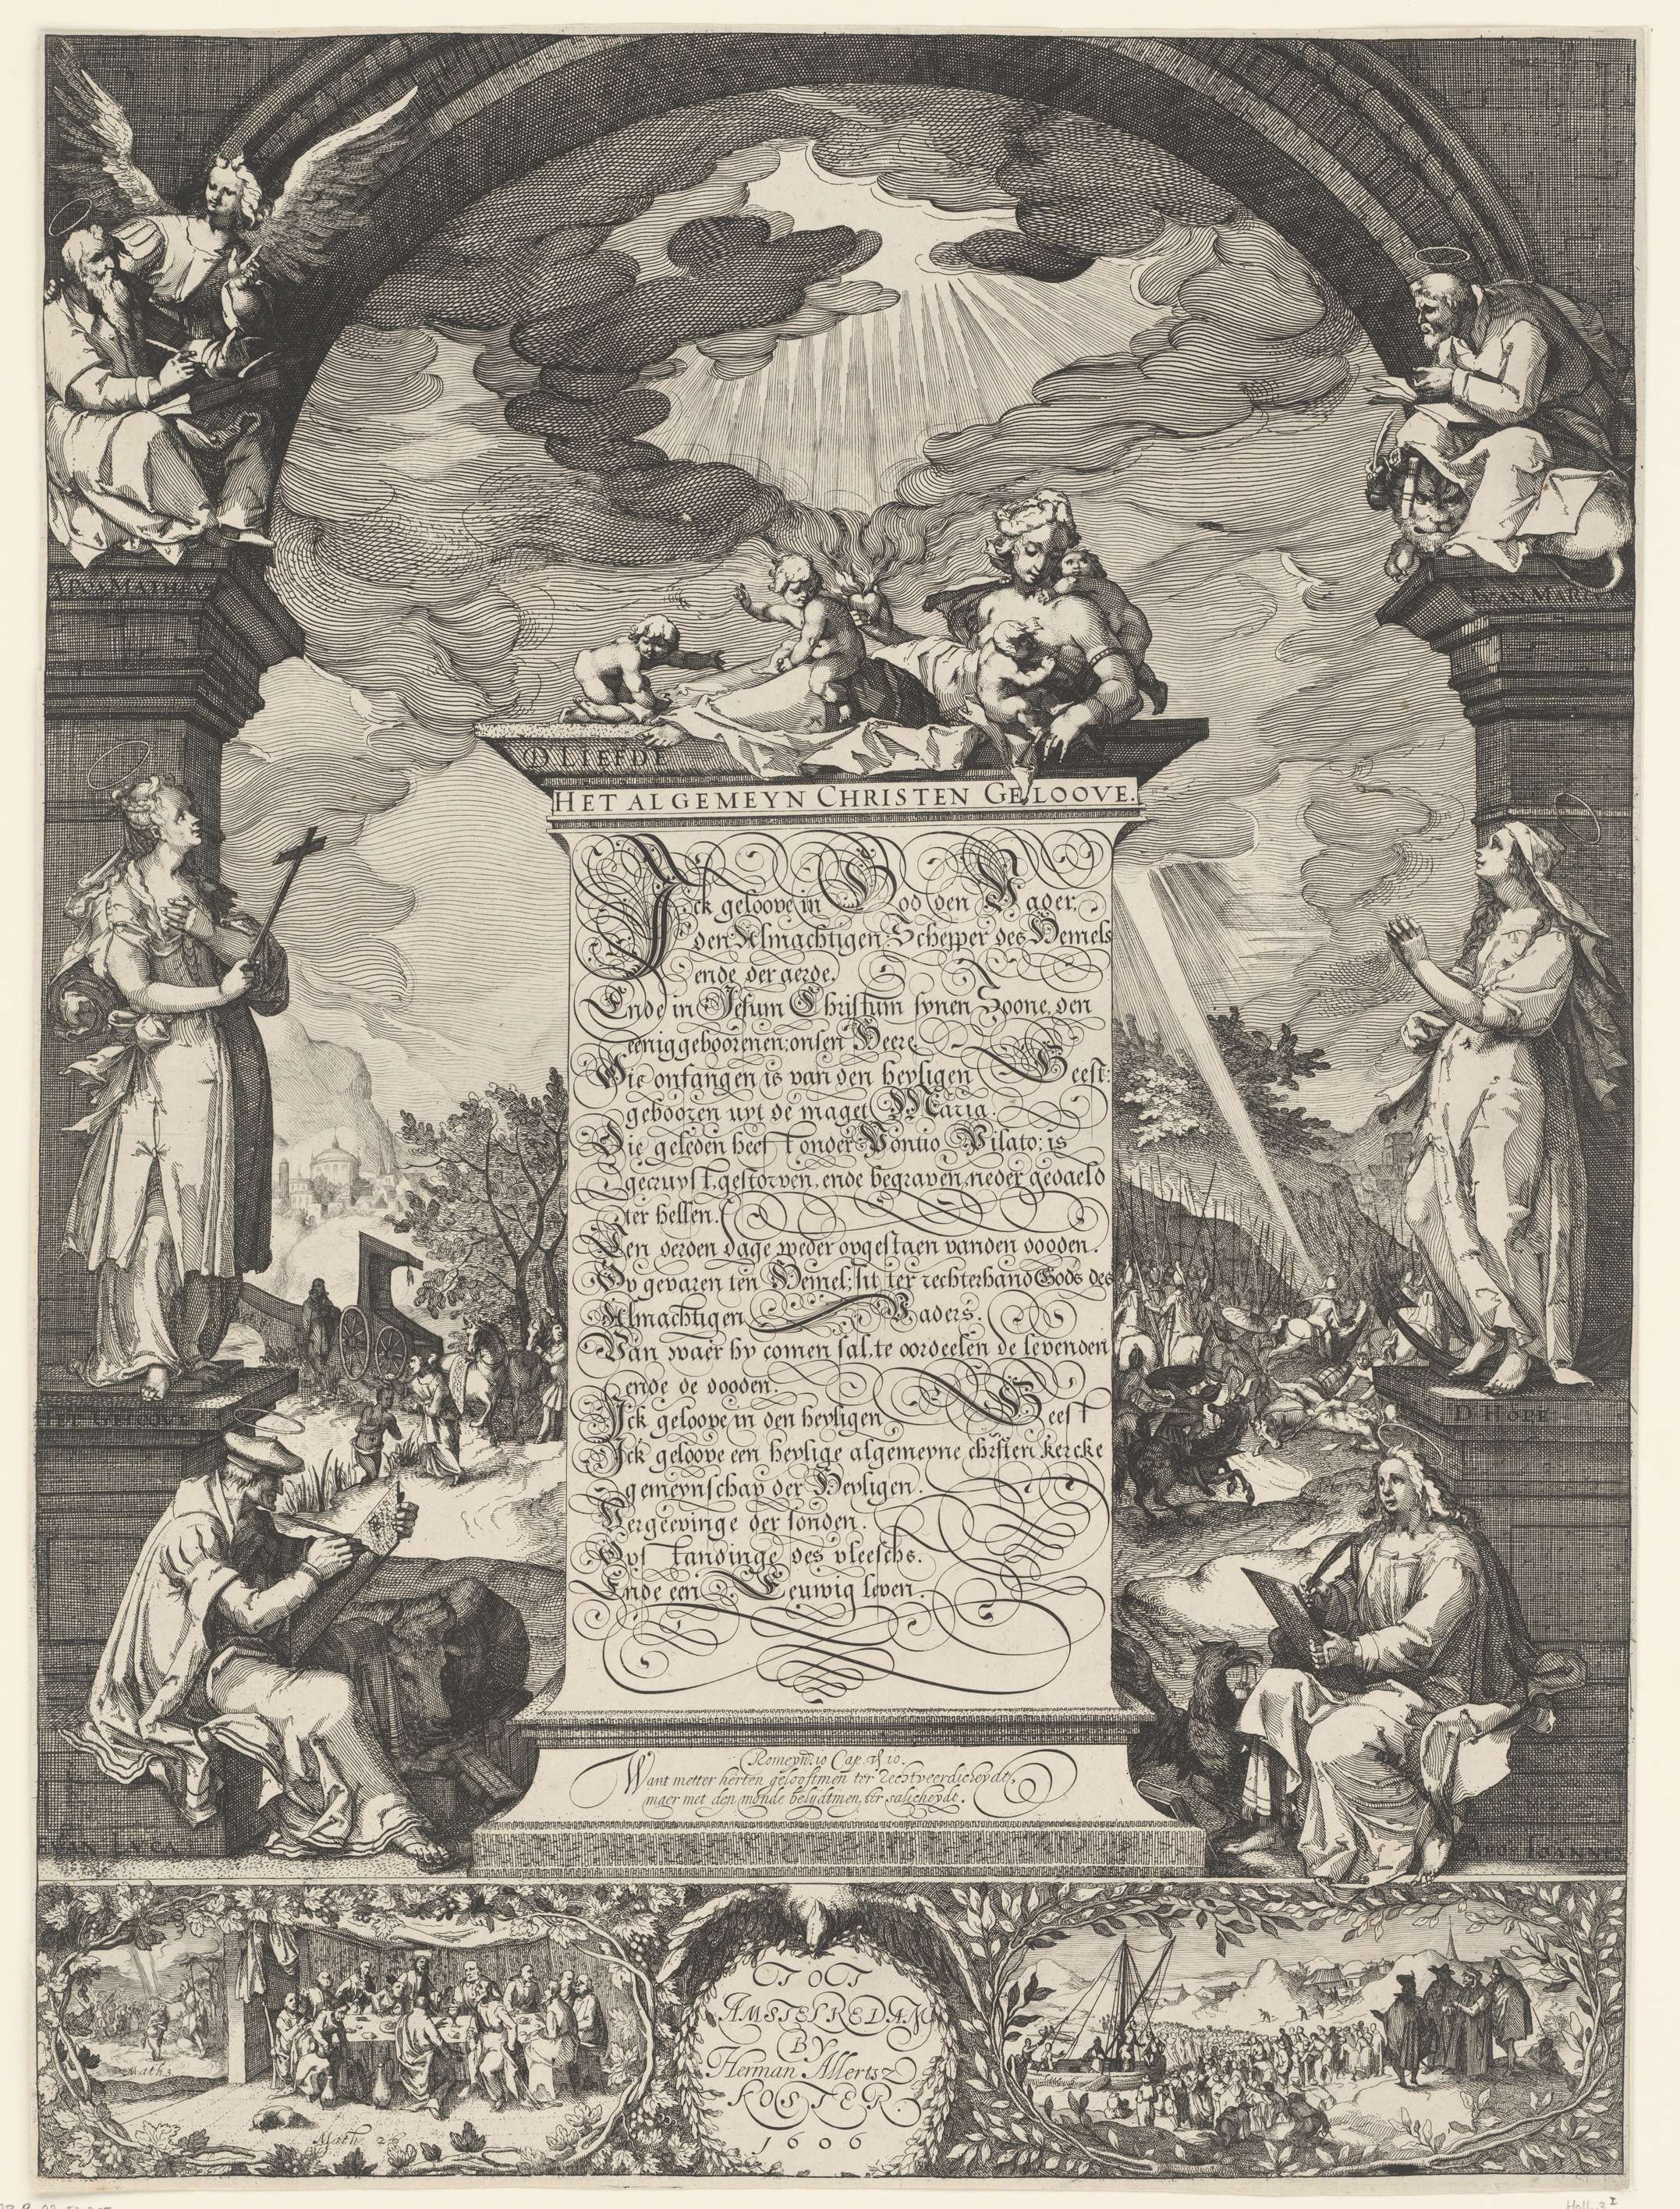 APOS MATHE
EVAN MARC
D LIEFDE
HET ALGEMEYN CHRISTEN GELOOVE.
Ick geloove in God den Vader,
den Almachtigen Schepper des Hemels
ende der aerde.
Ende in Jesum Christum synen Soone, den
eeniggeboorenen; onsen Heere
Die onfangen is van den heyligen Geest:
gebooren uyt de maget Maria.
Die geleden heeft onder Pontio Pilato; is
gecruyst, gestorven, ende begraven, neder gedaeld
ter hellen.
Ten derden dage weder opgestaen vanden dooden.
Op gevaren ten Hemel; sit ter rechterhand Gods des
Almachtigen Vaders.
Van waer hy comen sal, te oordeelen de levenden
ende de dooden.
Ick geloove in den heyligen Geest
Ick geloove een heylige algemeyne christen kercke
gemeynschap der Heyligen.
Vergeevinge der sonden.
Opstandinge des vleeschs.
Ende een Eeuwig leven.
HET GELOOVE
D HOPE
Romeyn: 10 Cap. vs 10.
Want metter herten gelooftmen ter Rechtveerdicheydt,
maer met den monde belijdtmen, ter salicheydt.
EVAN LVCA
APOS IOANNES
Math 3
Math 26
TOT
AMSTELREDAM
BY
Herman Allertsz
KOSTER.
1606
Holl. 3 I